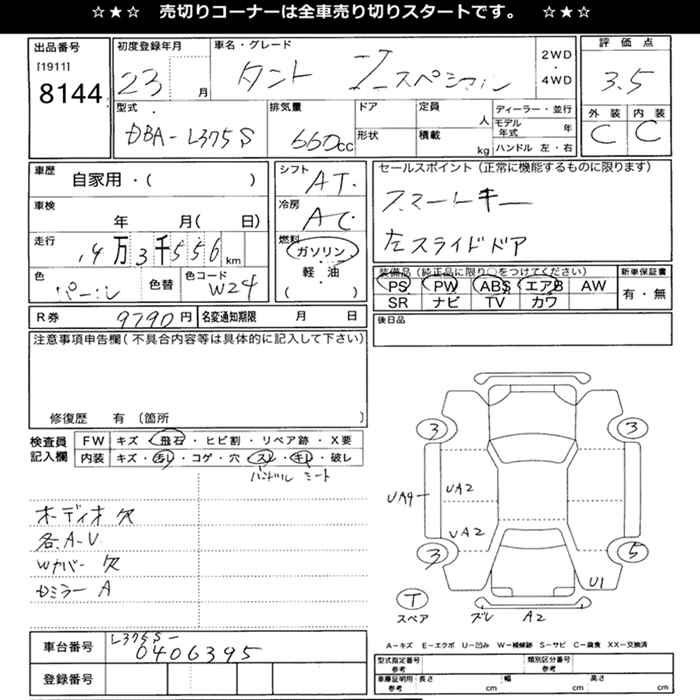 ☆★☆ 売切りコーナーは全車売り切りスタートです。 ☆★☆
出品番号
[1911]
8144
初度登録年月
23 月
車名・グレード
タント スペシャル
2WD
・
4WD
評価点
3.5
外装 内装
C C
型式
DBA-L375S
排気量
660cc
ドア
形状
定員
人
積載
kg
ディーラー・並行
モデル年式 年
ハンドル 左・右
車歴
自家用・( )
車検
年 月( 日)
走行
4万3千556km
色
パール
色替
色コード
W24
シフト
AT
冷房
AC
燃料
ガソリン
軽・油
( )
セールスポイント(正常に機能するものに限ります)
スマートキー
左スライドドア
装備品(純正品に限り○をつけてください)
PS PW ABS エアB AW
SR ナビ TV カワ
新車保証書
有・無
R券 9790円
名変通知期限 月 日
後日品
注意事項申告欄(不具合内容等は具体的に記入して下さい)
修復歴 有(箇所 )
検査員
記入欄
FW キズ・飛石・ヒビ割・リペア跡・X要
内装 キズ・汚レ・コゲ・穴・スレ・キレ・破レ
ハンドル シート
オーディオ欠
各A-U
Wカバー欠
Dミラー A
3 3
UA4 UA2
UA2
3 5
U1
T
スペア
ズレ A2
A-キズ E-エクボ U-凹み W-補修跡 S-サビ C-腐食 XX-交換済
車台番号
L375S-
0406395
登録番号
型式指定番号
参考
類別区分番号
参考
車庫証明用
参考
長さ cm
幅 cm
高さ cm